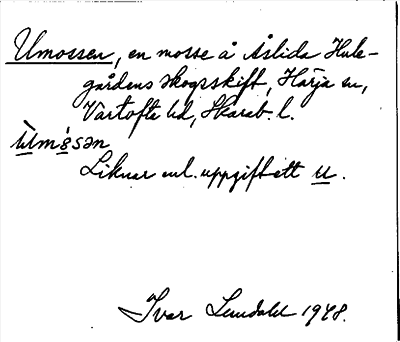 Umossen, en mosse å Åslida Hule-
gårdens skogsskift, Härja sn,
Vartofta hd, Skarab. l.
ùlmó̀sən
Liknar enl. uppgift ett u.
Ivar Lundahl 1948.